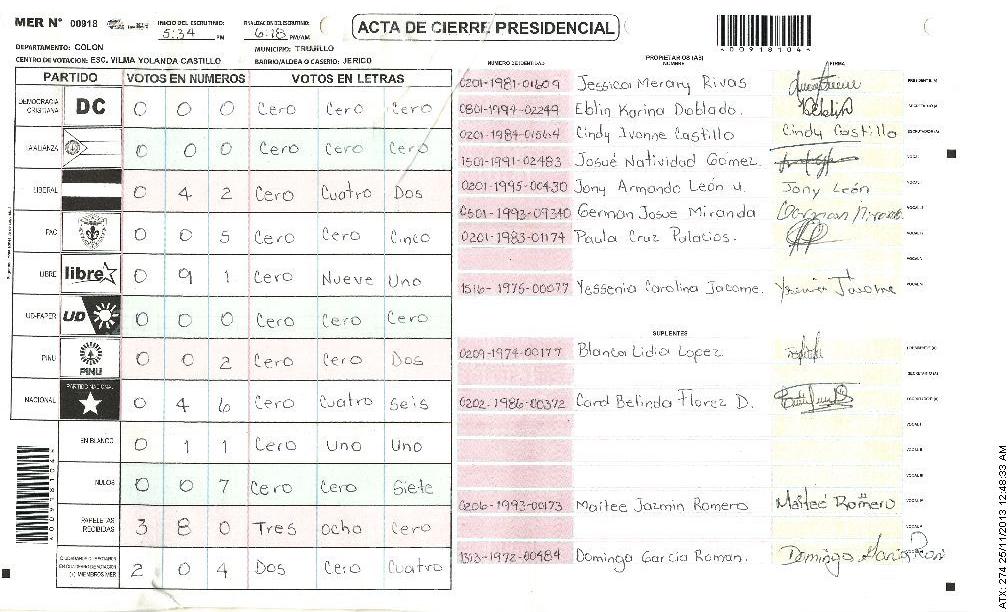 MER N° 00918 INICIO DEL ESCRUTINIO: 5:34 PM FINALIZACION DEL ESCRUTINIO: 6:18 PM/AM
ACTA DE CIERRE PRESIDENCIAL
400918104
DEPARTAMENTO: COLON MUNICIPIO: TRUJILLO
CENTRO DE VOTACION: ESC. VILMA YOLANDA CASTILLO BARRIO/ALDEA O CASERIO: JERICO
PARTIDO VOTOS EN NUMEROS VOTOS EN LETRAS
DEMOCRACIA CRISTIANA DC 0 0 0 Cero Cero Cero
LA ALIANZA 0 0 0 Cero Cero Cero
LIBERAL 0 4 2 Cero Cuatro Dos
PAC 0 0 5 Cero Cero Cinco
LIBRE libre 0 9 1 Cero Nueve Uno
UD-FAPER UD 0 0 0 Cero Cero Cero
PINU PINU 0 0 2 Cero Cero Dos
NACIONAL PARTIDO NACIONAL 0 4 6 Cero Cuatro Seis
EN BLANCO 0 1 1 Cero Uno Uno
NULOS 0 0 7 Cero Cero Siete
PAPELETAS RECIBIDAS 3 8 0 Tres Ocho Cero
(+) MIEMBROS MER 2 0 4 Dos Cero Cuatro
400918104
PROPIETARIOS (AS)
NUMERO DE IDENTIDAD NOMBRE FIRMA
0201-1981-01609 Jessica Merary Rivas PRESIDENTE(A)
0801-1994-02249 Eblin Karina Doblado. SECRETARIO(A)
0201-1984-01564 Cindy Ivonne Castillo Cindy Castillo ESCRUTADOR(A)
1501-1991-02483 Josué Natividad Gómez. VOCAL I
0201-1995-00430 Jony Armando León u. Jony León
0501-1993-09340 German Josue Miranda German
0201-1983-01174 Paula Cruz Palacios.
1516-1975-00077 Yessenia Carolina Jacome. Yessenia Jacome
SUPLENTES
0209-1974-00177 Blanca Lidia Lopez
SECRETARIO(A)
0202-1986-00372 Carol Belinda Florez D.
0206-1993-00173 Maitee Jazmin Romero Maitee Romero
1313-1972-00484 Domingo Garcia Roman. Domingo Garcia
ATX: 274 25/11/2013 12:48:33 AM